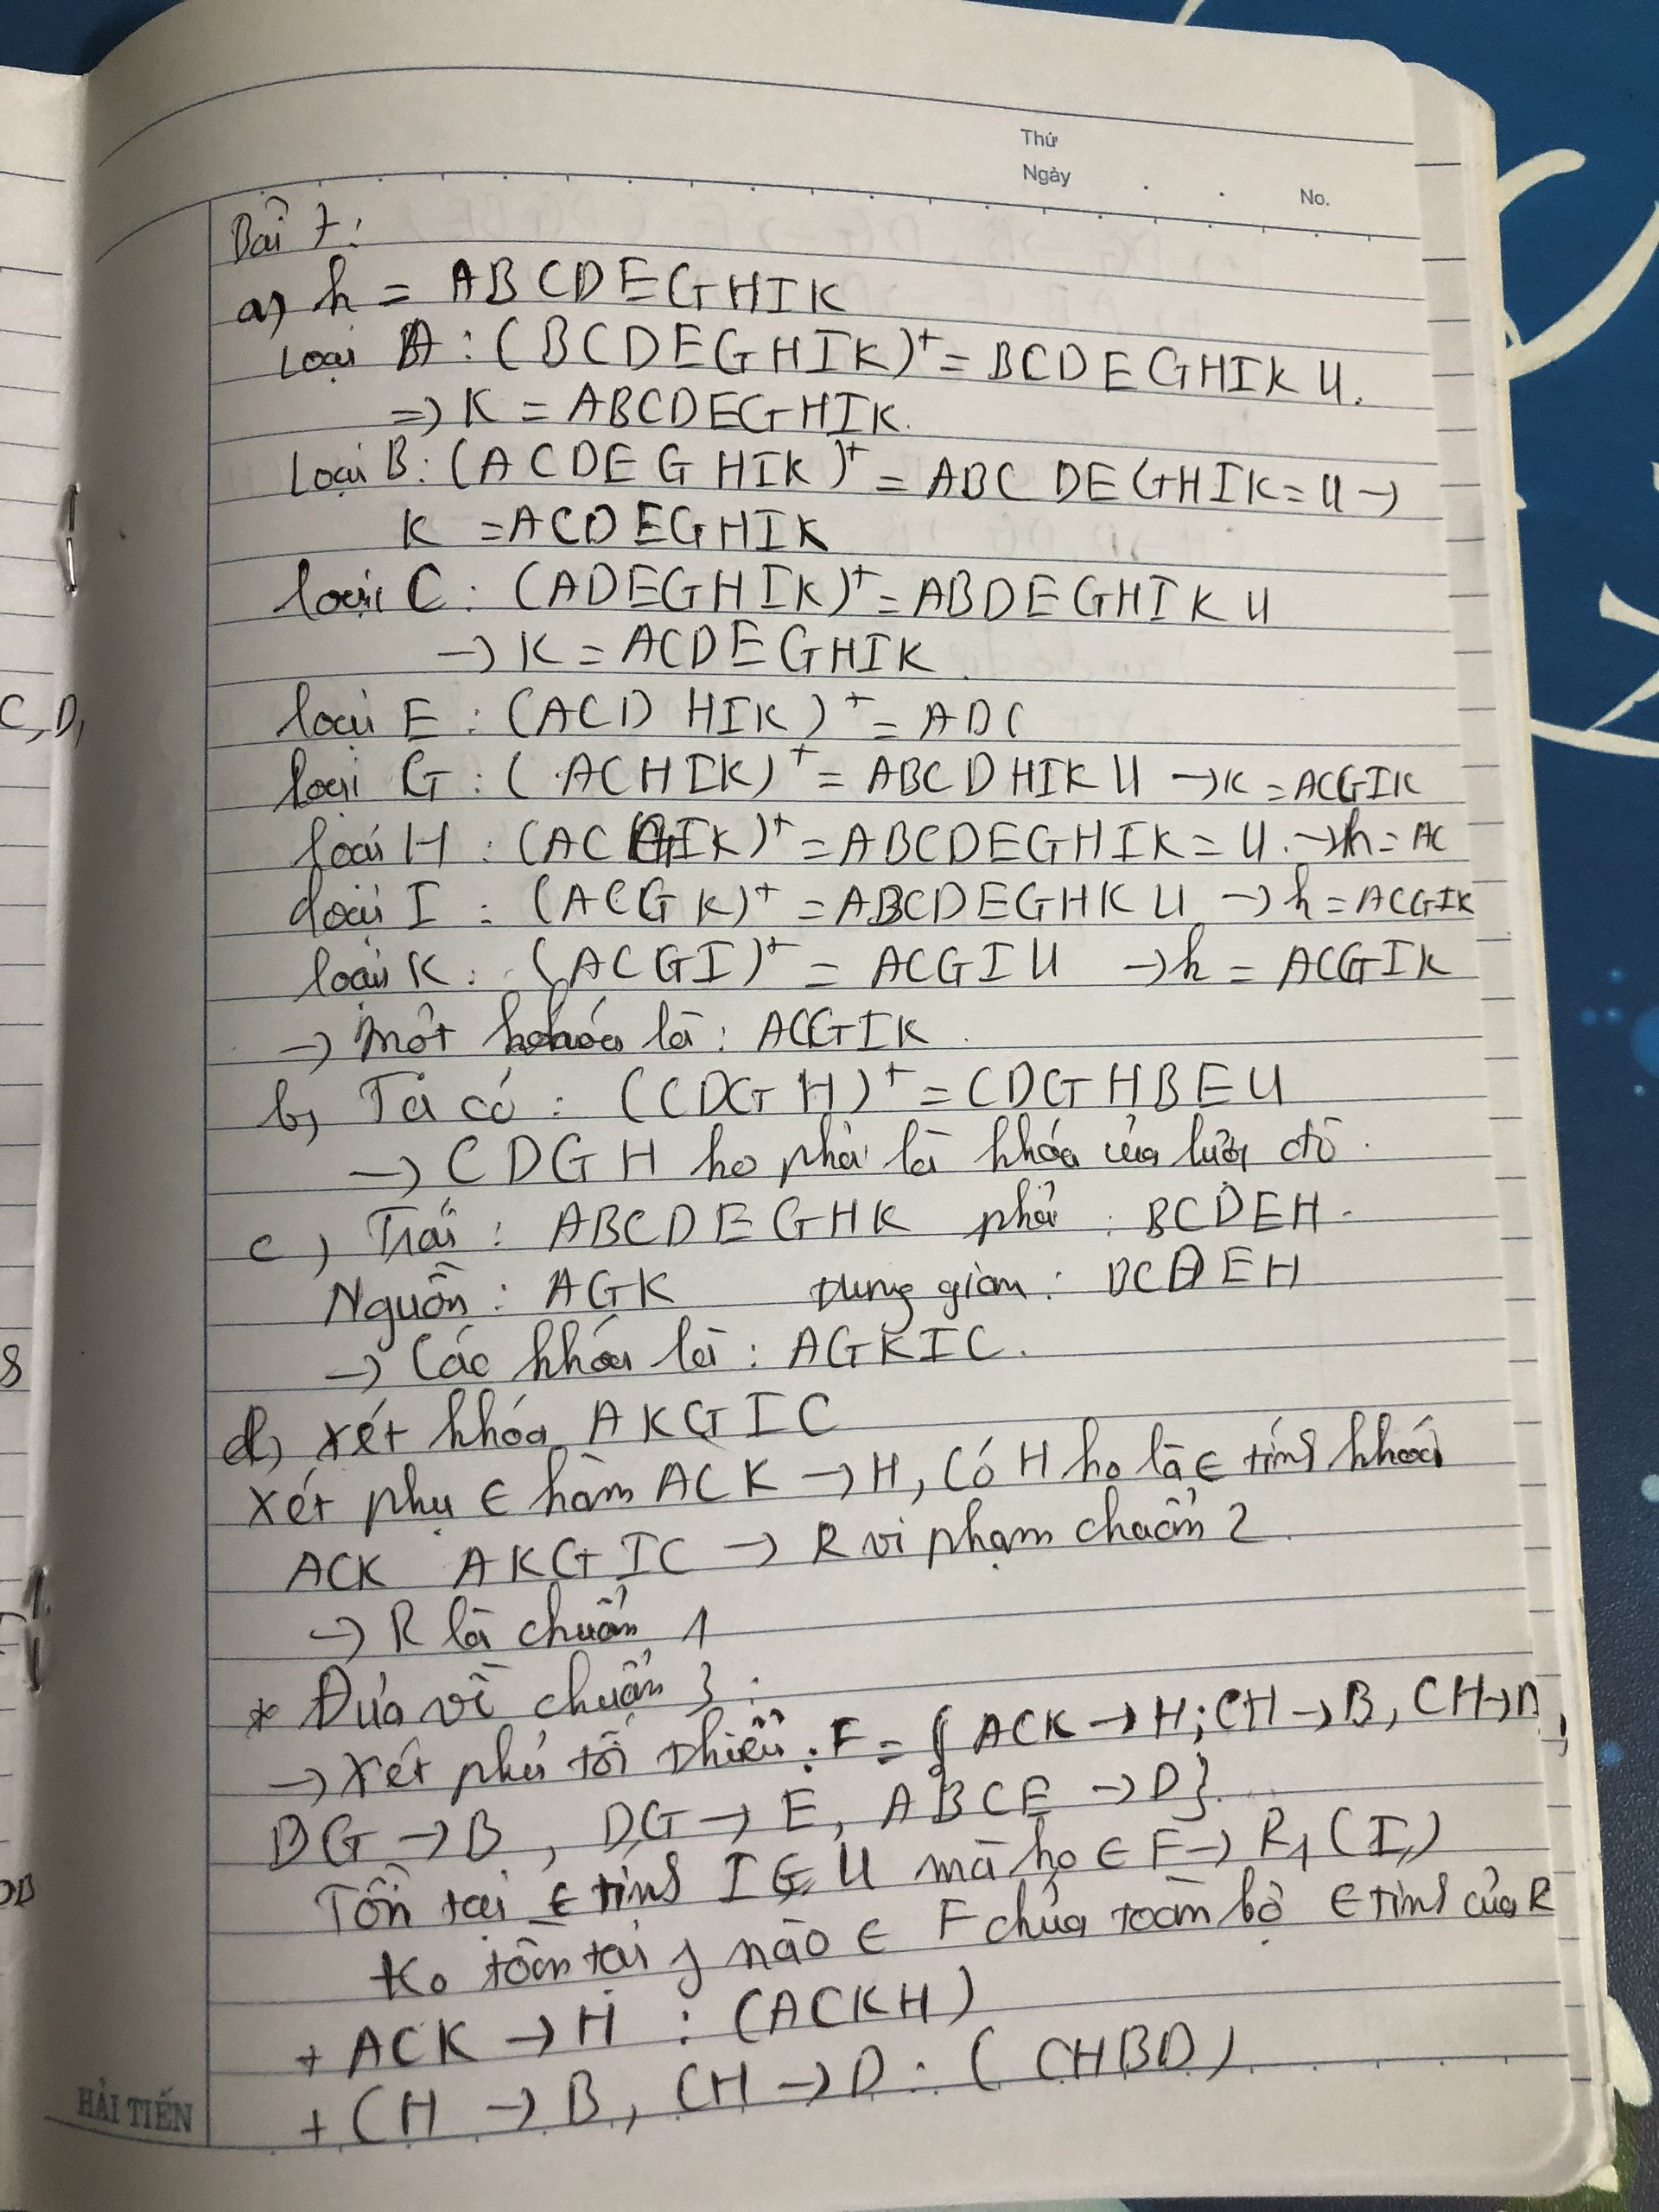 Thứ
Ngày
No.
Bài 7:
a) k = ABCDEGHIK
Loại A : (BCDEGHIK)⁺ = BCDEGHIK U.
=> K = ABCDEGHIK.
Loại B: (ACDEGHIK)⁺ = ABCDEGHIK = U →
K = ACDEGHIK
loại C : (ADEGHIK)⁺ = ABDEGHIK U
→ K = ACDEGHIK
loại E : (ACD HIK)⁺ = ADC
loại G : (ACHIK)⁺ = ABCDHIK U → K = ACGIK
loại H : (ACGIK)⁺ = ABCDEGHIK = U. → k = AC
loại I : (ACGK)⁺ = ABCDEGHK U → k = ACGIK
loại K : (ACGI)⁺ = ACGI U → k = ACGIK
→ Một khóa là : ACGIK
b, Ta có : (CDGH)⁺ = CDGHBE U
→ CDGH ko phải là khóa của lược đồ.
c, Trái : ABCDEGHK phải : BCDEH.
Nguồn : AGK trung gian : BCDEH
→ Các khóa là : AGKIC.
d, xét khóa AKGIC
xét phụ ∈ hàm ACK → H, có H ko là ∈ tính khóa
ACK AKGIC → R vi phạm chuẩn 2.
→ R là chuẩn 1
* Đưa về chuẩn 3 :
→ Xét phủ tối thiểu : F = { ACK → H; CH → B, CH → D,
DG → B, DG → E, ABCE → D}.
Tồn tại ∈ tính I ∈ U mà ko ∈ F → R1 (I)
Ko tồn tại f nào ∈ F chứa toàn bộ ∈ tính của R
+ ACK → H : (ACKH)
+ CH → B, CH → D : (CHBD)
HẢI TIẾN
C, D,
8